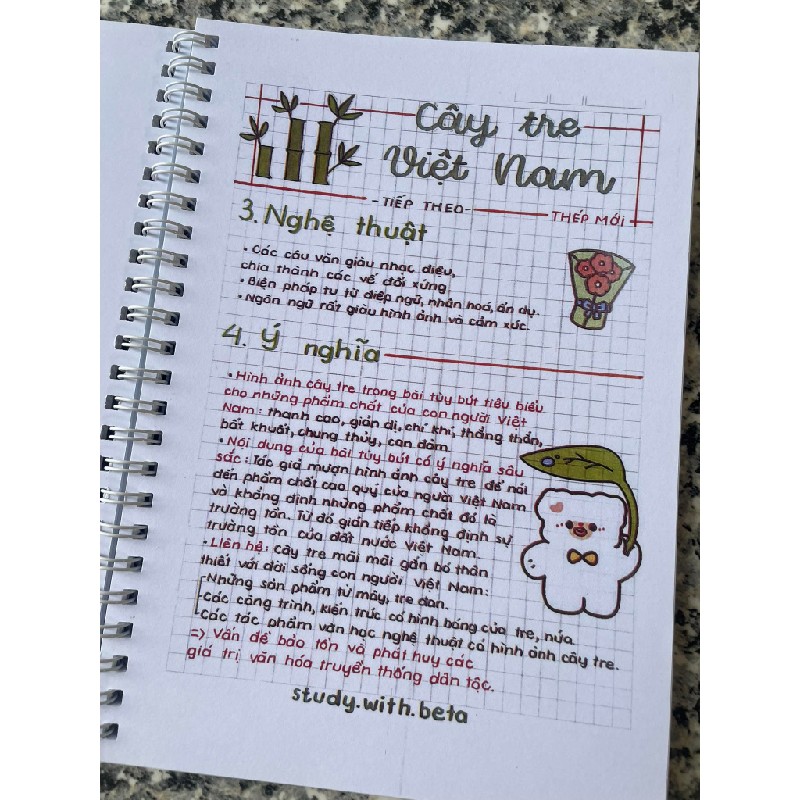 Cây tre
Việt Nam
- TIẾP THEO -
THÉP MỚI
3. Nghệ thuật
• Các câu văn giàu nhạc điệu,
chia thành các vế đối xứng.
• Biện pháp tu từ điệp ngữ, nhân hoá, ẩn dụ.
• Ngôn ngữ rất giàu hình ảnh và cảm xúc.
4. Ý nghĩa
• Hình ảnh cây tre trong bài tùy bút tiêu biểu
cho những phẩm chất của con người Việt
Nam: thanh cao, giản dị, chí khí, thẳng thắn,
bất khuất, chung thủy, can đảm.
• Nội dung của bài tùy bút có ý nghĩa sâu
sắc: Tác giả mượn hình ảnh cây tre để nói
đến phẩm chất cao quý của người Việt Nam
và khẳng định những phẩm chất đó là
trường tồn. Từ đó gián tiếp khẳng định sự
trường tồn của đất nước Việt Nam.
• Liên hệ: cây tre mãi mãi gắn bó thân
thiết với đời sống con người Việt Nam:
- Những sản phẩm từ mây, tre đan.
- Các công trình, kiến trúc có hình bóng của tre, nứa.
- Các tác phẩm văn học nghệ thuật có hình ảnh cây tre.
=> Vấn đề bảo tồn và phát huy các
giá trị văn hóa truyền thống dân tộc.
study.with.beta